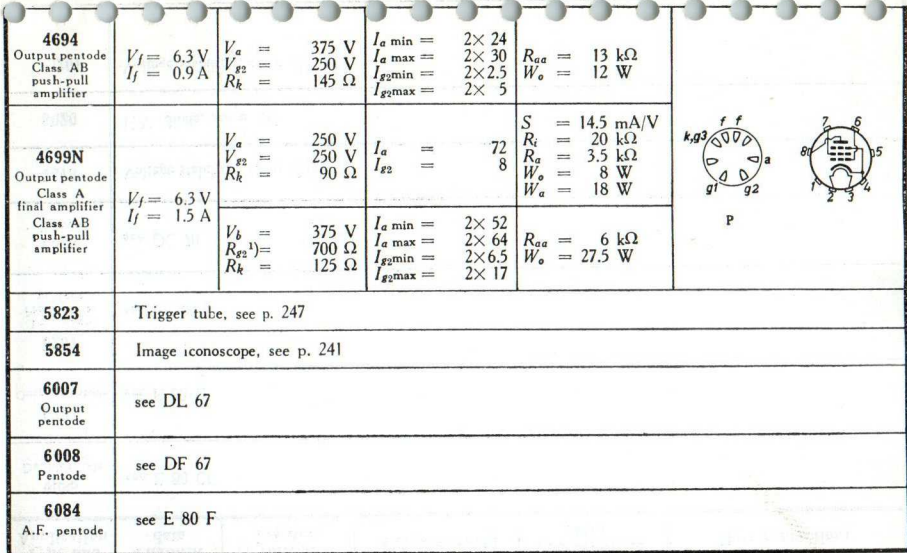 4694
Output pentode
Class AB
push-pull
amplifier
Vf = 6.3 V
If = 0.9 A
Va = 375 V
Vg2 = 250 V
Rk = 145 Ω
Ia min = 2× 24
Ia max = 2× 30
Ig2min = 2×2.5
Ig2max = 2× 5
Raa = 13 kΩ
Wo = 12 W
4699N
Output pentode
Class A
final amplifier
Class AB
push-pull
amplifier
Vf = 6.3 V
If = 1.5 A
Va = 250 V
Vg2 = 250 V
Rk = 90 Ω
Ia = 72
Ig2 = 8
S = 14.5 mA/V
Ri = 20 kΩ
Ra = 3.5 kΩ
Wo = 8 W
Wa = 18 W
Vb = 375 V
Rg2¹)= 700 Ω
Rk = 125 Ω
Ia min = 2× 52
Ia max = 2× 64
Ig2min = 2×6.5
Ig2max = 2× 17
Raa = 6 kΩ
Wo = 27.5 W
f f
k,g3
a
g1 g2
P
7 6
8 5
1 4
2 3
5823
Trigger tube, see p. 247
5854
Image iconoscope, see p. 241
6007
Output
pentode
see DL 67
6008
Pentode
see DF 67
6084
A.F. pentode
see E 80 F